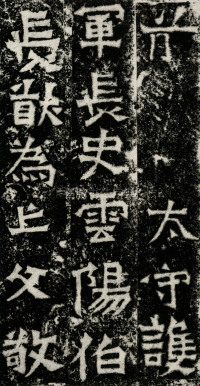 太守護
軍長史雲陽伯
長猷為亡父敬